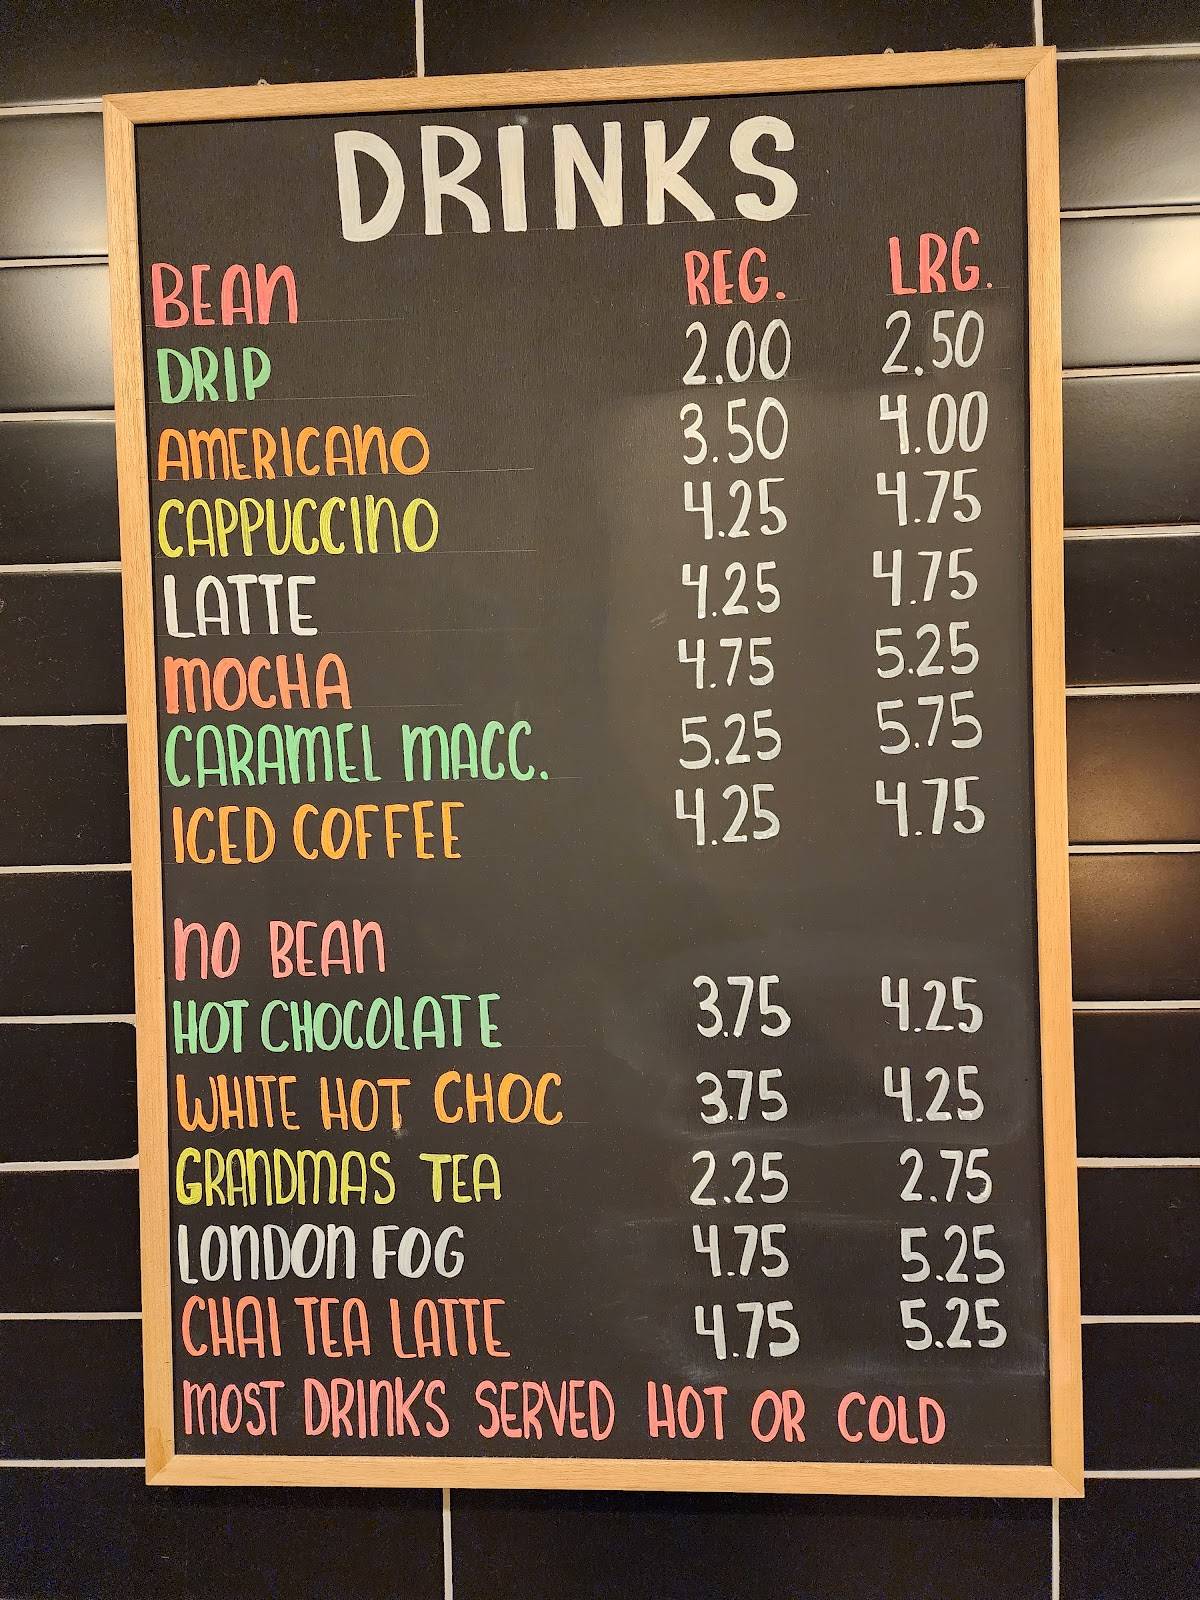 DRINKS
BEAN REG. LRG.
DRIP 2.00 2.50
AMERICANO 3.50 4.00
CAPPUCCINO 4.25 4.75
LATTE 4.25 4.75
MOCHA 4.75 5.25
CARAMEL MACC. 5.25 5.75
ICED COFFEE 4.25 4.75
NO BEAN
HOT CHOCOLATE 3.75 4.25
WHITE HOT CHOC 3.75 4.25
GRANDMAS TEA 2.25 2.75
LONDON FOG 4.75 5.25
CHAI TEA LATTE 4.75 5.25
MOST DRINKS SERVED HOT OR COLD